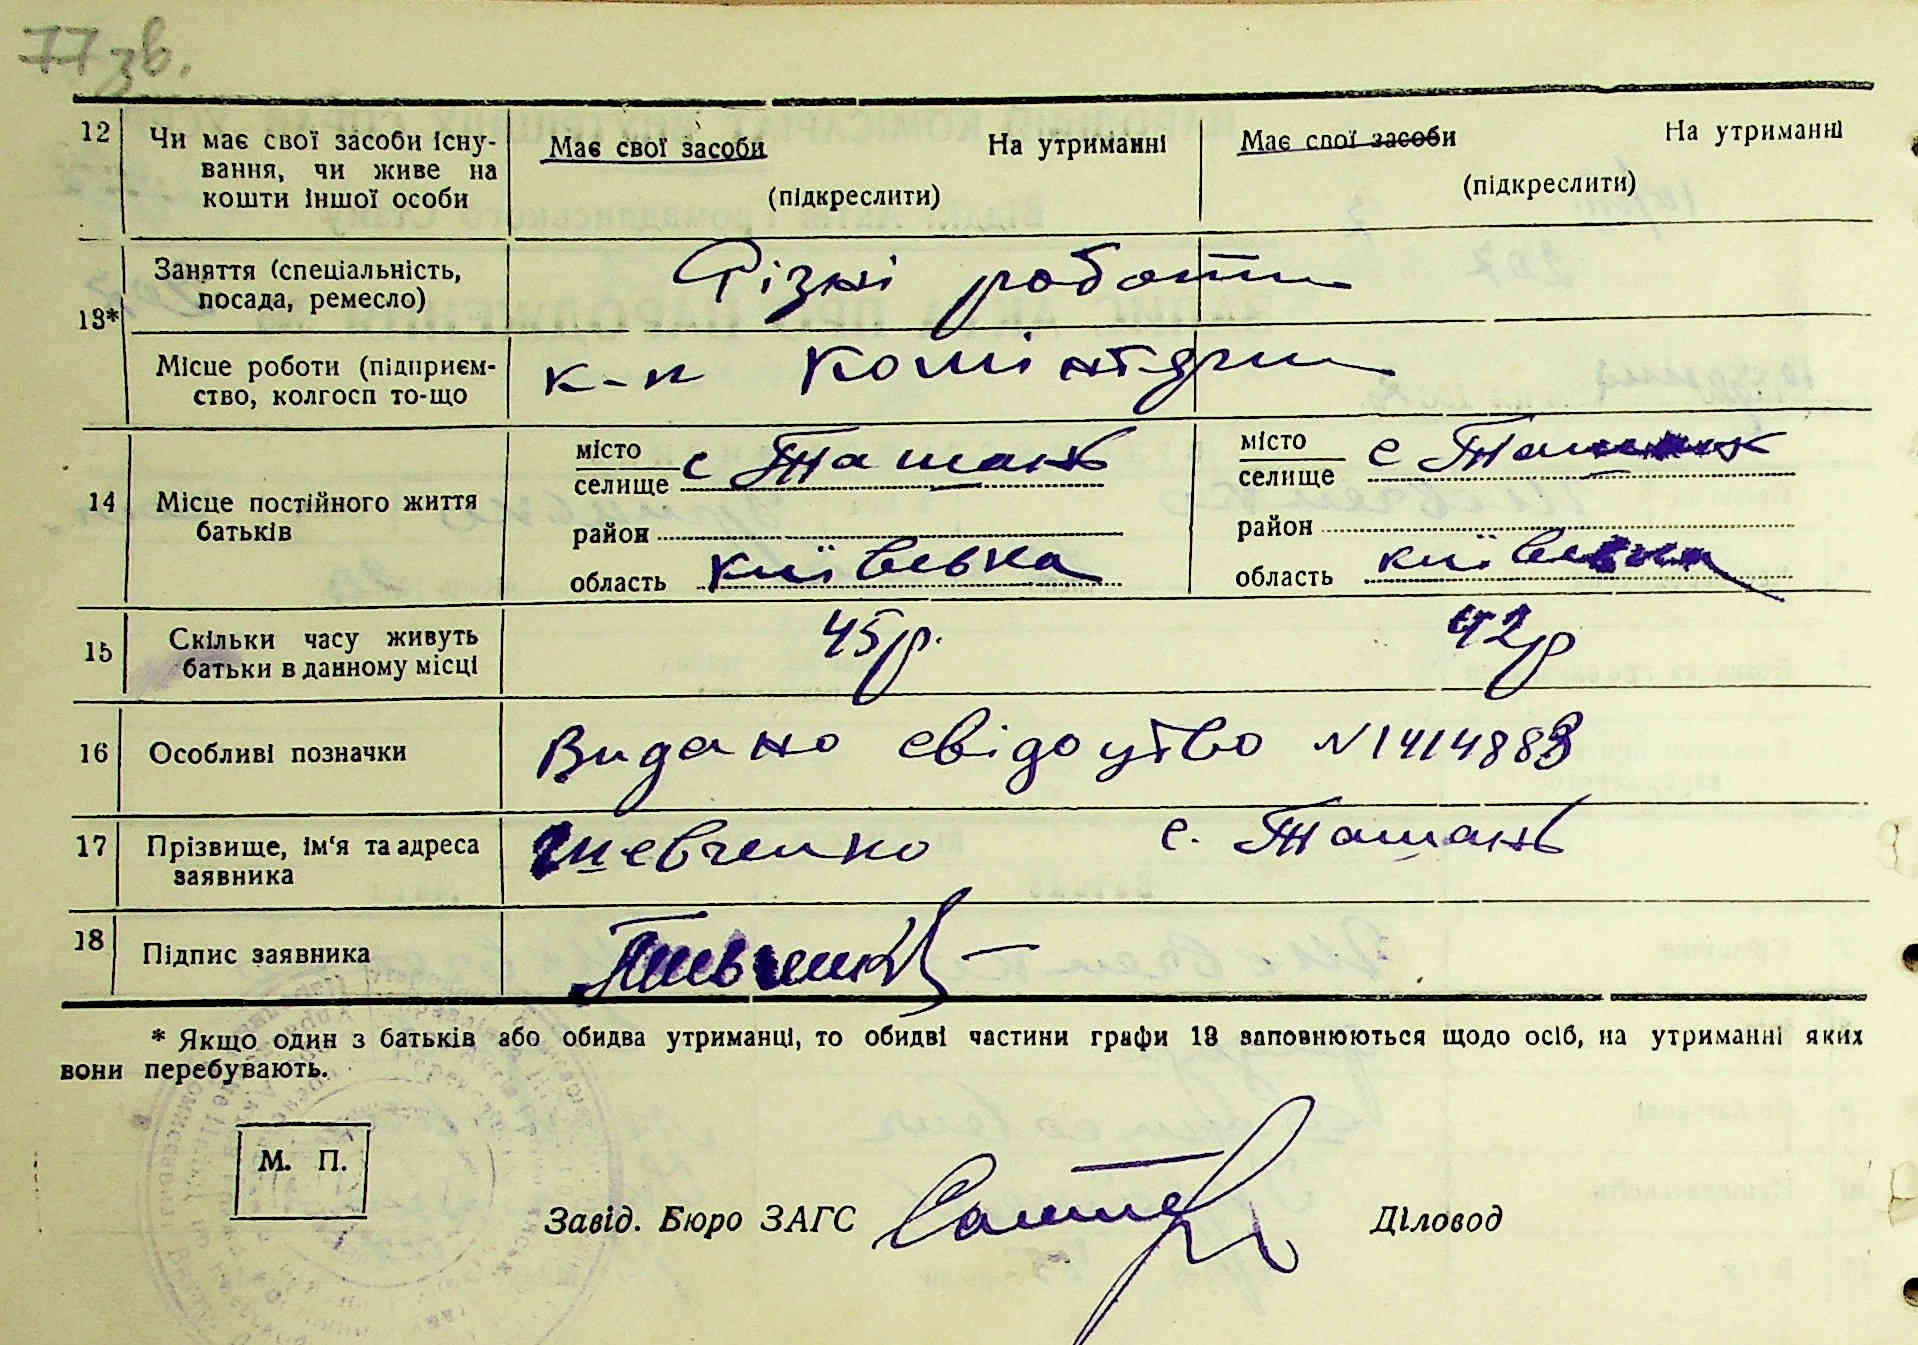 77 зв.
12 Чи має свої засоби існу- Має свої засоби На утриманні Має свої засоби На утриманні
вання, чи живе на
кошти іншої особи (підкреслити) (підкреслити)
13* Заняття (спеціальність, Різні роботи
посада, ремесло)
Місце роботи (підприєм- к-п Комінтерн
ство, колгосп то-що
14 Місце постійного життя батьків
місто
селище с Ташань
район
область київська
місто
селище с Ташань
район
область київська
15 Скільки часу живуть 45 р. 42 р
батьки в данному місці
16 Особливі позначки Видано свідоцтво №1414883
17 Прізвище, ім'я та адреса Шевченко с. Ташань
заявника
18 Підпис заявника Шевченко
* Якщо один з батьків або обидва утриманці, то обидві частини графи 13 заповнюються щодо осіб, на утриманні яких
вони перебувають.
М. П.
Завід. Бюро ЗАГС Діловод